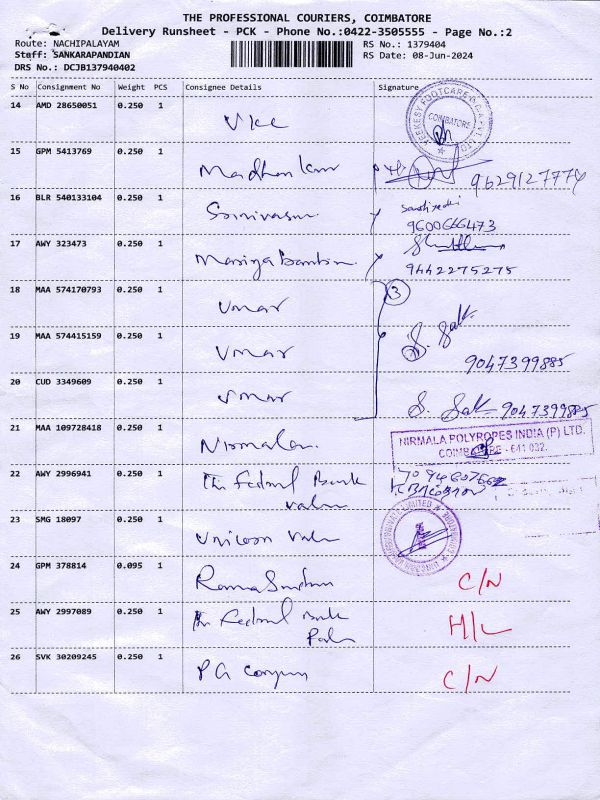 THE PROFESSIONAL COURIERS, COIMBATORE
Delivery Runsheet - PCK - Phone No.:0422-3505555 - Page No.:2
Route: NACHIPALAYAM RS No.: 1379404
Staff: SANKARAPANDIAN RS Date: 08-Jun-2024
DRS No.: DCJB137940402
S No Consignment No Weight PCS Consignee Details Signature
14 AMD 28650051 0.250 1
COIMBATORE
15 GPM 5413769 0.250 1
Madhan Kumar
9629127774
16 BLR 540133104 0.250 1
Srinivasan
9600666473
17 AWY 323473 0.250 1
9442275275
18 MAA 574170793 0.250 1
Umar 3
19 MAA 574415159 0.250 1
Umar S. Sak
9047399885
20 CUD 3349609 0.250 1
Umar S. Sak 9047399885
21 MAA 109728418 0.250 1
NIRMALA POLYROPES INDIA (P) LTD.
COIMBATORE - 641 032.
22 AWY 2996941 0.250 1
The Federal Bank
23 SMG 18097 0.250 1
24 GPM 378814 0.095 1
C/N
25 AWY 2997089 0.250 1
The Federal Bank
H/L
26 SVK 30209245 0.250 1
C/N